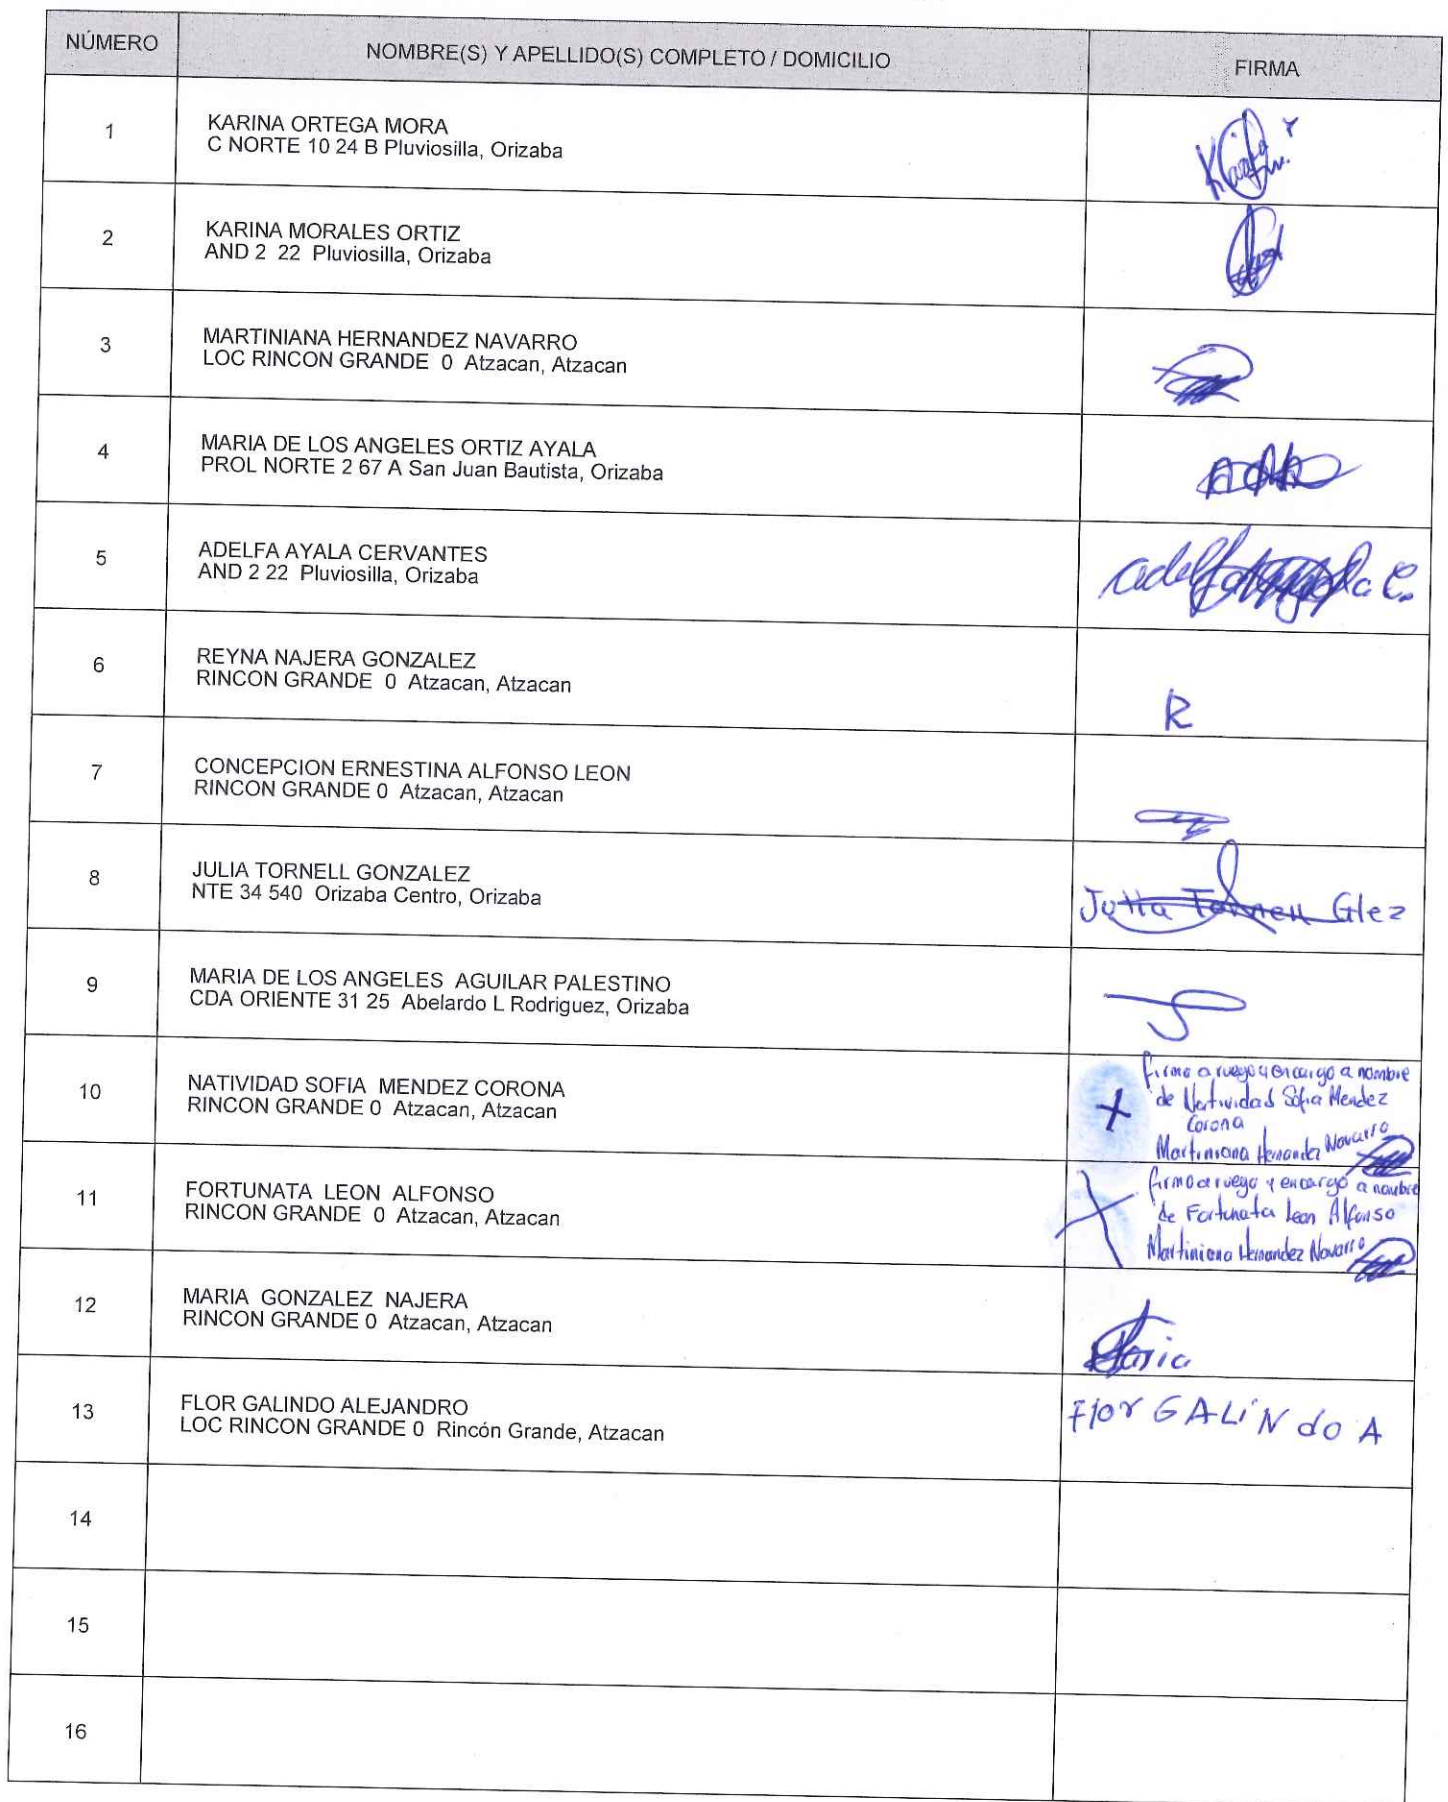 NÚMERO NOMBRE(S) Y APELLIDO(S) COMPLETO / DOMICILIO FIRMA
1 KARINA ORTEGA MORA
C NORTE 10 24 B Pluviosilla, Orizaba
2 KARINA MORALES ORTIZ
AND 2 22 Pluviosilla, Orizaba
3 MARTINIANA HERNANDEZ NAVARRO
LOC RINCON GRANDE 0 Atzacan, Atzacan
4 MARIA DE LOS ANGELES ORTIZ AYALA
PROL NORTE 2 67 A San Juan Bautista, Orizaba
5 ADELFA AYALA CERVANTES
AND 2 22 Pluviosilla, Orizaba
6 REYNA NAJERA GONZALEZ
RINCON GRANDE 0 Atzacan, Atzacan
R
7 CONCEPCION ERNESTINA ALFONSO LEON
RINCON GRANDE 0 Atzacan, Atzacan
8 JULIA TORNELL GONZALEZ
NTE 34 540 Orizaba Centro, Orizaba
Julia Tornell Glez
9 MARIA DE LOS ANGELES AGUILAR PALESTINO
CDA ORIENTE 31 25 Abelardo L Rodriguez, Orizaba
10 NATIVIDAD SOFIA MENDEZ CORONA
RINCON GRANDE 0 Atzacan, Atzacan
X
firmo a ruego y encargo a nombre
de Natividad Sofia Mendez
Corona
Martiniana Hernandez Navarro
11 FORTUNATA LEON ALFONSO
RINCON GRANDE 0 Atzacan, Atzacan
X
firmo a ruego y encargo a nombre
de Fortunata Leon Alfonso
Martiniana Hernandez Navarro
12 MARIA GONZALEZ NAJERA
RINCON GRANDE 0 Atzacan, Atzacan
Maria
13 FLOR GALINDO ALEJANDRO
LOC RINCON GRANDE 0 Rincón Grande, Atzacan
Flor GALINdo A
14
15
16